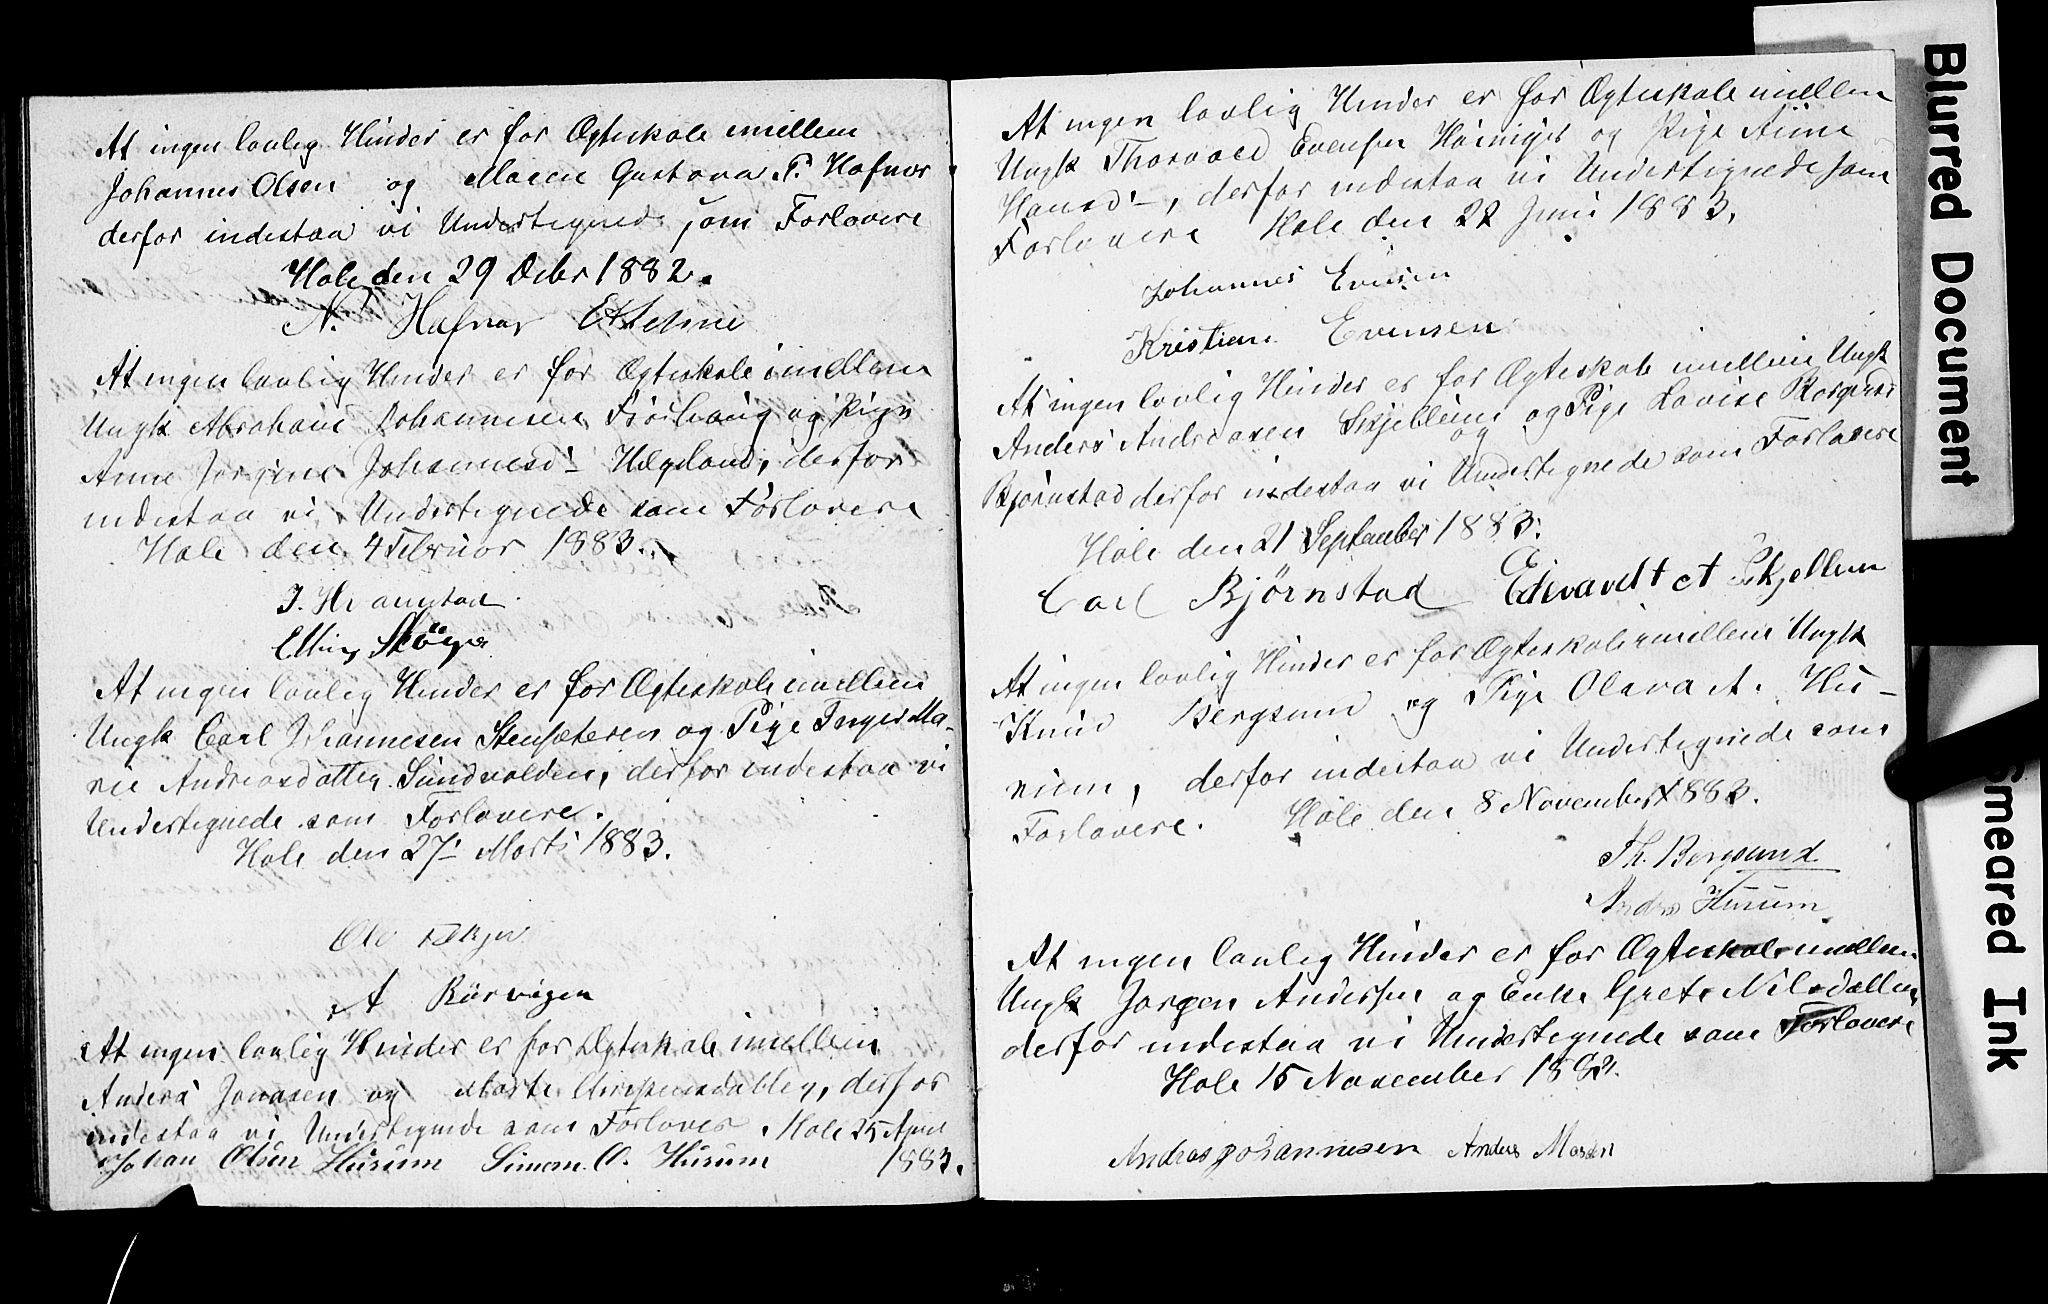 At ingen lovlig Hinder er for Ægteskab imellem
Johannes Olsen og Maren Gustava P. Hafnor
derfor indestaa vi Undertegnede som Forlovere
Hole den 29 Debr 1882.
N. Hafnor
At ingen lovlig Hinder er for Ægteskab imellem
Ungk Abraham Johannesen Fjorhaug og Pige
Anne Jørgine Johannesd- Hægeland, derfor
indestaa vi Undertegnede som Forlovere
Hole den 4 Februar 1883.
Elling
At ingen lovlig Hinder er for Ægteskab imellem
Ungk Carl Johannesen Stensæteren og Pige Inger Ma-
rie Andreasdatter Sundvolden, derfor indestaa vi
Undertegnede som Forlovere.
Hole den 27- Marts 1883.
Ole
A Rörvigen
At ingen lovlig Hinder er for Ægteskab imellem
Anders Jonasen og Marte, derfor
indestaa vi Undertegnede som Forlover. Hole 25 April
Johan Olsen Husum Simon O. Husum 1883.
At ingen lovlig Hinder er for Ægteskab imellem
Ungk Thorvald Evensen og Pige Anne
Hansd-, derfor indestaa vi Undertegnede som
Forlovere Hole den 22 Juni 1883.
Johannes Evensen
Kristian Evensen
At ingen lovlig Hinder er for Ægteskab imellem Ungk
Anders Andreasen Skjellum og Pige Lovise
og
Bjørnstad derfor indestaa vi Undertegnede som Forlovere
Hole den 21 September 1883.
Carl Bjørnstad Edevardt A Skjellum
At ingen lovlig Hinder er for Ægteskab imellem Ungk
Knud Bergsund og Pige Olava A. Hu-
sum, derfor indestaa vi Undertegnede som
Forlovere. Hole den 8 November 1883.
Th. Bergsund
Anders Husum
At ingen lovlig Hinder er for Ægteskab imellem
Ungk Jørgen Andersen og Enke Grete Nilsdatter
derfor indestaa vi Undertegnede som Forlovere
Hole 15 November 1883.
Andreas Johannesen Anders Mosen
Blurred Document
Smeared Ink